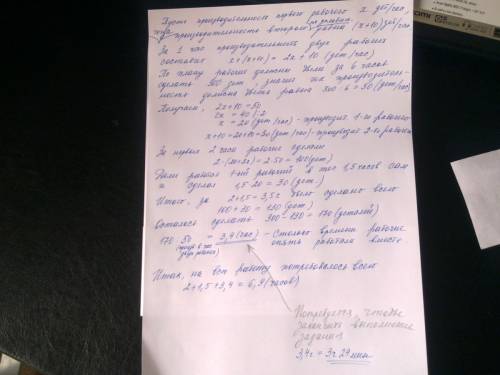 Пусть производительность первого рабочего x дет/час,
тогда производительность второго рабочего равна (x+10) дет/час
За 1 час производительность двух рабочих
составит x+(x+10) = 2x+10 (дет/час)
По плану рабочие должны были за 6 часов
сделать 300 дет, значит их производитель-
ность должна быть равна 300:6=50 (дет/час)
Получаем, 2x+10=50
2x = 40 |:2
x = 20 (дет/час) - производит. 1-го рабочего
x+10=20+10=30 (дет/час) - производит 2-го рабочего
За первые 2 часа рабочие сделали
2·(20+30)=2·50=100 (дет)
Далее работал 1-ый рабочий в теч 1,5 часов сам
и сделал 1,5·20=30 (дет.)
Итого, за 2+1,5=3,5ч было сделано всего
100+30=130 (дет)
Осталось сделать 300-130=170 (деталей)
170:50 = 3,4 (час) - столько времени рабочие
опять работали вместе
Итак, на всю работу потребовалось всего
2+1,5+3,4=6,9 (часов)
Потребуется, чтобы
закончить выполнение
задания
3,4ч = 3ч 24 мин